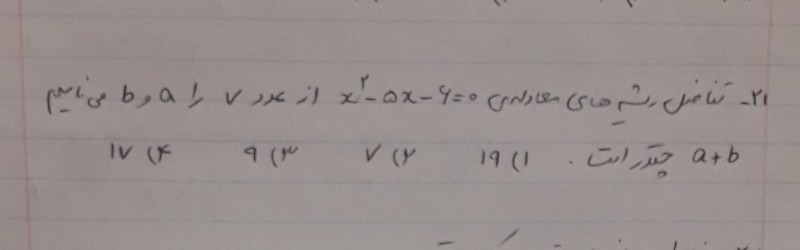 ۲۱- تفاضل ریشه های معادله‌ی x²-۵x-۶=۰ از عدد ۷ را a و b می نامیم
a+b چقدر است. ۱) ۱۹ ۲) ۷ ۳) ۹ ۴) ۱۷